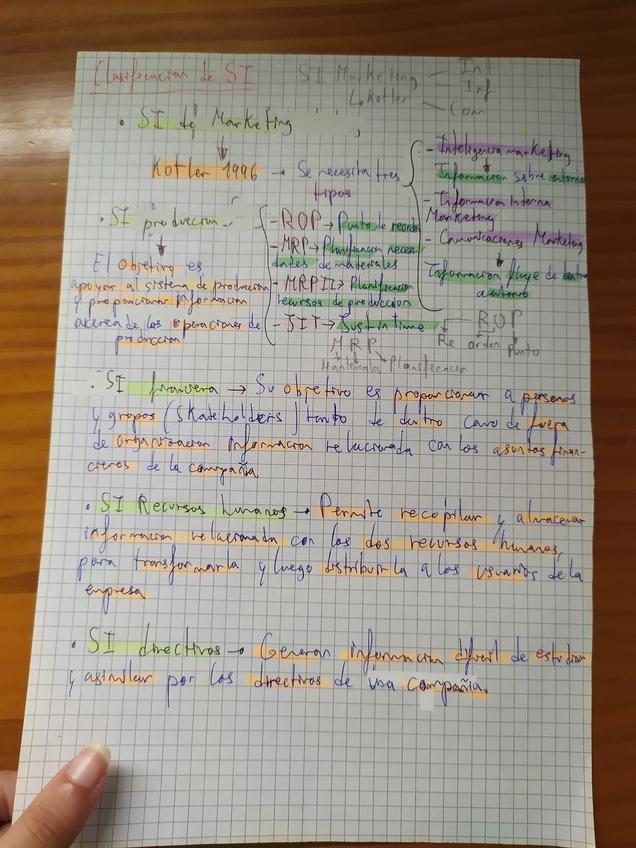 Clasificacion de SI
SI Marketing - Int
- Inf
Kotler - Com
• SI de Marketing
Kotler 1996 → Se necesita tres
tipos
- Inteligencia marketing
Informacion sobre entorno
- Informacion Interna
Marketing
- Comunicaciones Marketing
Informacion fluye de dentro
a entorno
• SI produccion
El objetivo es
apoyar al sistema de produccion
y proporcionar informacion
acerca de las operaciones de
produccion
- ROP → Punto de reorden
- MRP → Planificacion necesi-
dades de materiales
- MRPII → Planificacion
recursos de produccion
- JIT → Just in time
ROP
Re orden punto
MRP
Materiales Planificacion
• SI financiera → Su objetivo es proporcionar a personas
y grupos (Skateholders) tanto de dentro como de fuera
de organizacion informacion relacionada con los asuntos finan-
cieros de la compañia
• SI Recursos humanos → Permite recopilar y almacenar
informacion relacionada con los dos recursos humanos,
para transformarla y luego distribuirla a los usuarios de la
empresa
• SI directivos → Generan informacion dificil de estudiar
y asimilar por los directivos de una compañia.